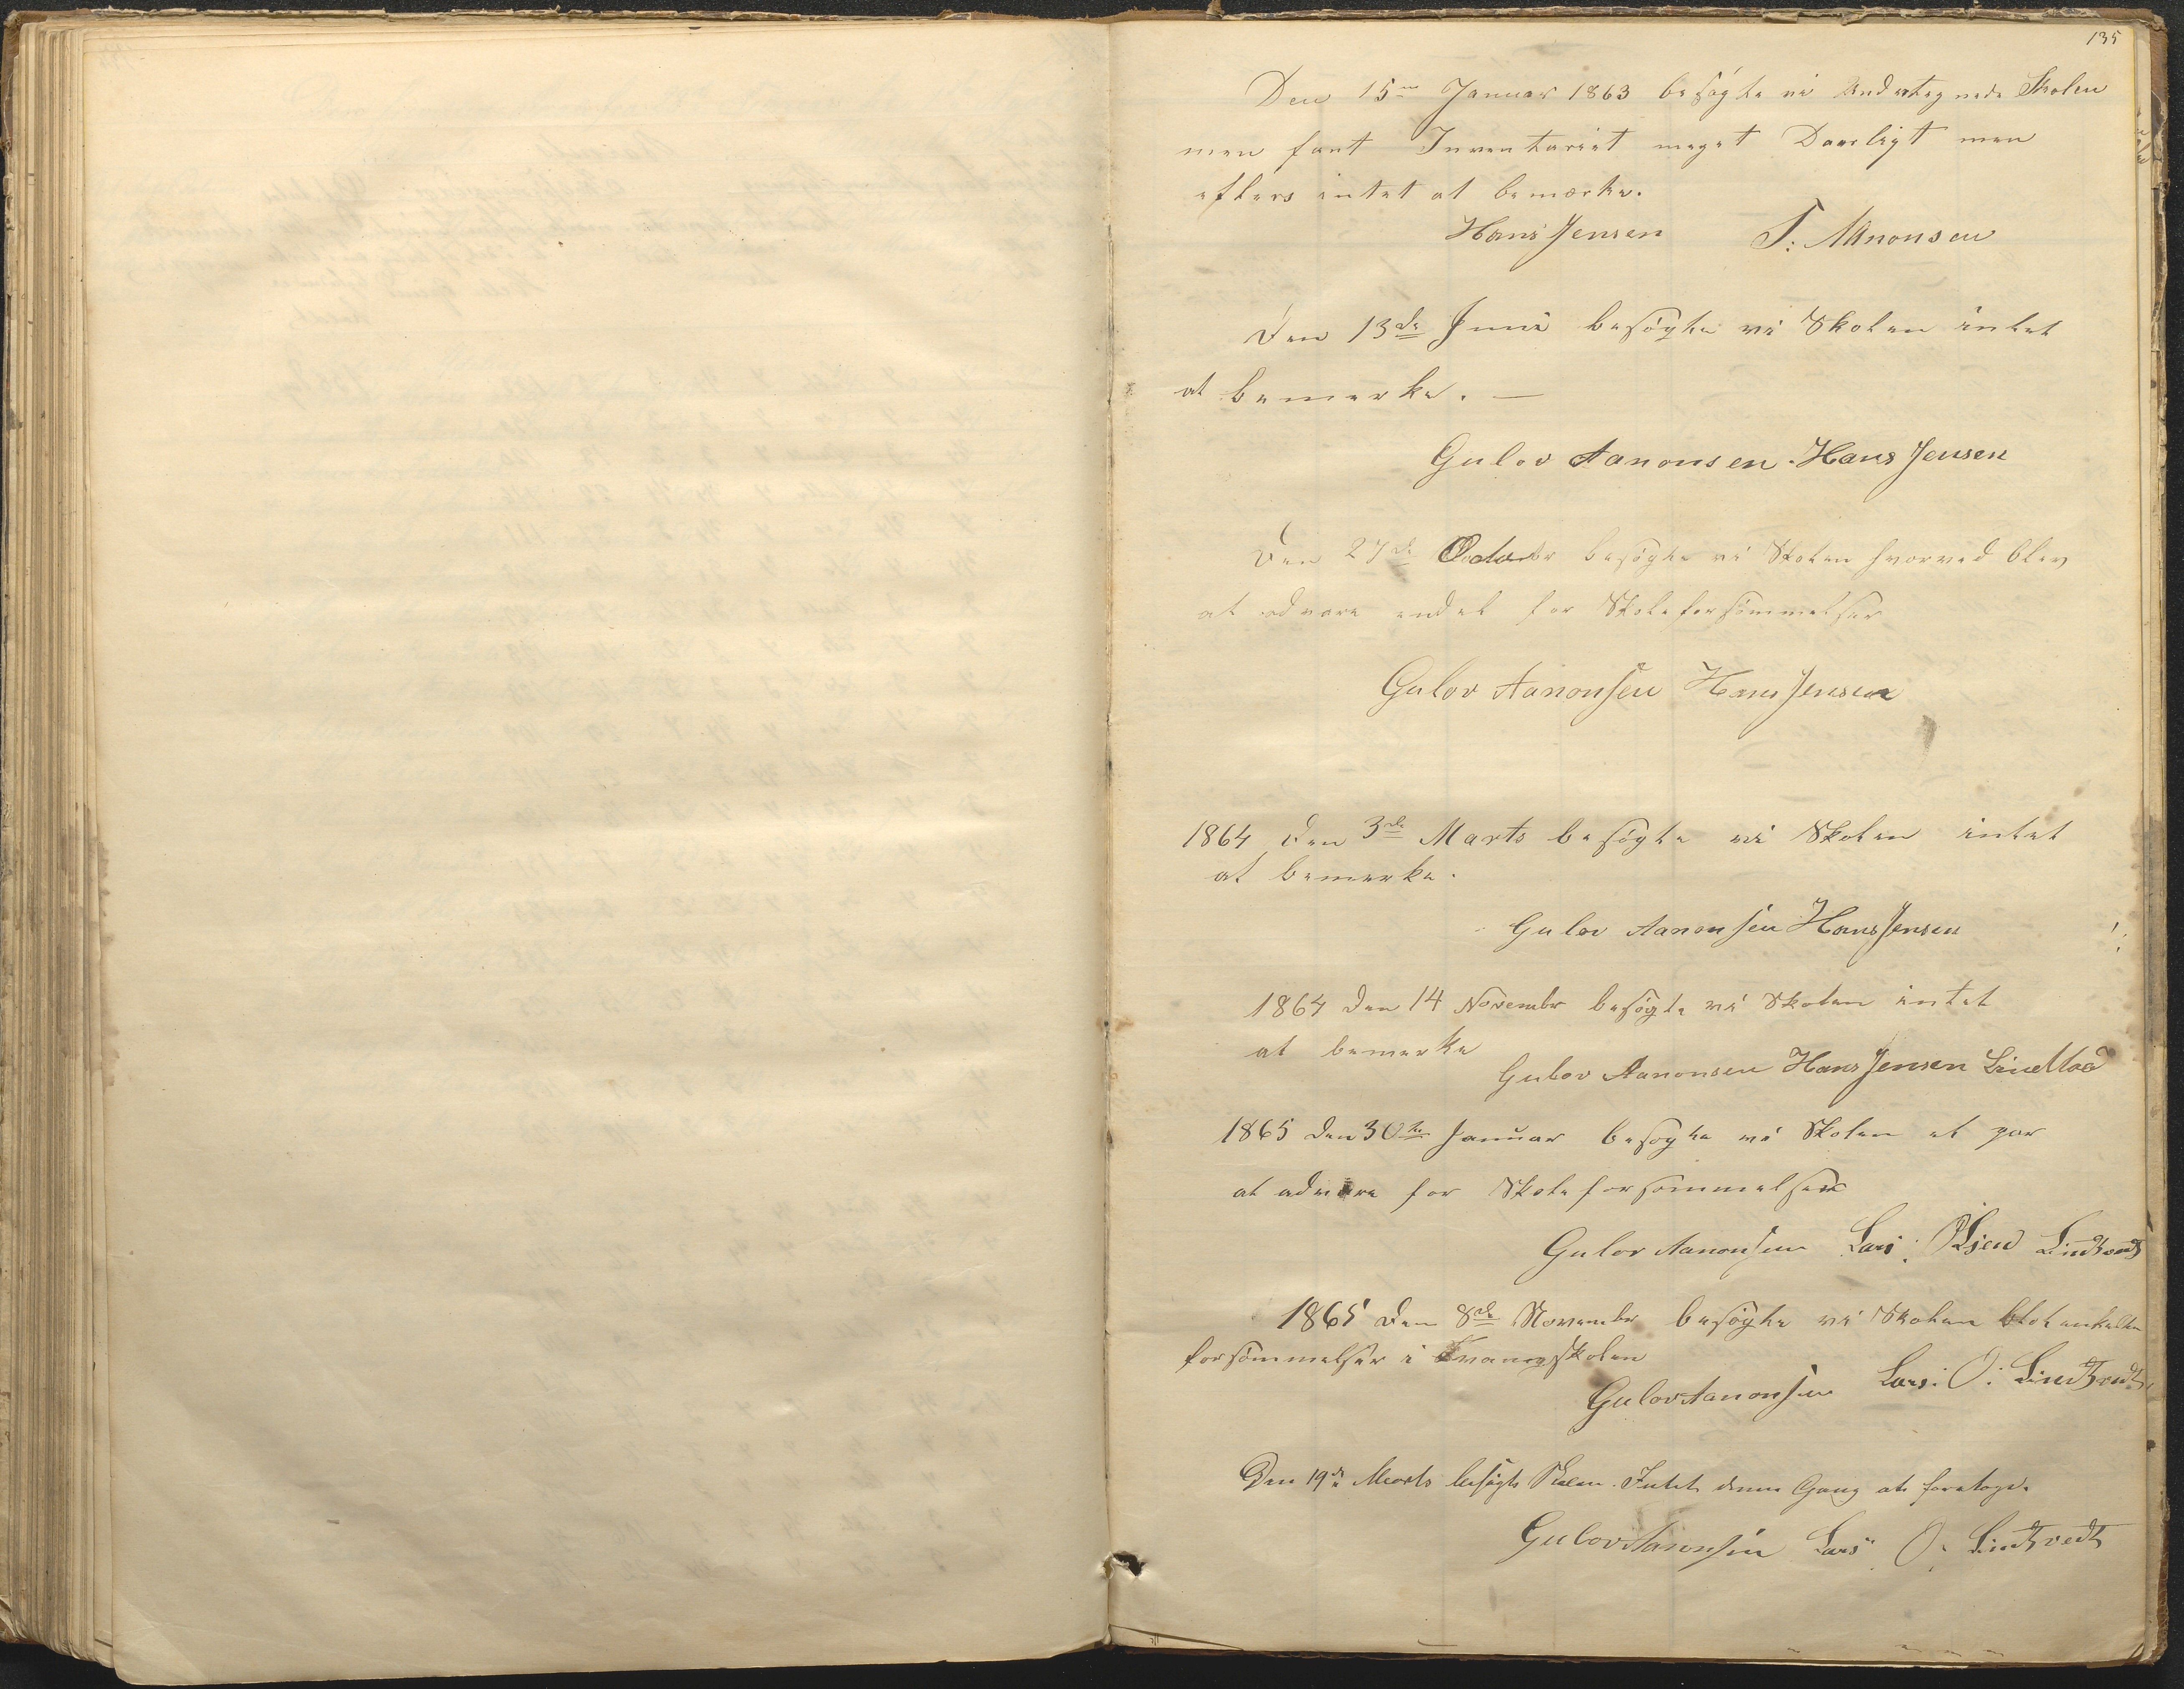 135
Den 15de Januar 1863 besøgte vi Undertegnede Skolen
men fant Inventariet meget Daarligt men
ellers intet at bemærke.
Hans Jensen T. Aanonsen
Den 13de Juni besøgte vi Skolen intet
at bemerke. —
Gulov Aanonsen Hans Jensen
Den 27de Octobr besøgte vi Skolen hvorved blev
at advare endel for Skoleforsømmelser
Gulov Aanonsen Hans Jensen
1864 den 3de Marts besøgte vi Skolen intet
at bemerke.
Gulov Aanonsen Hans Jensen
1864 den 14 Novembr besøgte vi Skolen intet
at bemerke
Gulov Aanonsen Hans Jensen
1865 den 30te Januar besøgte vi Skolen et par
at advare for Skoleforsømmelser
Gulov Aanonsen Lars: Olsen Lindtvedt
1865 den 8de Novembr besøgte vi Skolen blot enkelte
forsømmelser i Kvangskolen
Gulov Aanonsen Lars: O: Lindtvedt
Den 19de Marts besøgts Skolen. Intet denne Gang at foretage.
Gulov Aanonsen Lars O: Lindtvedt